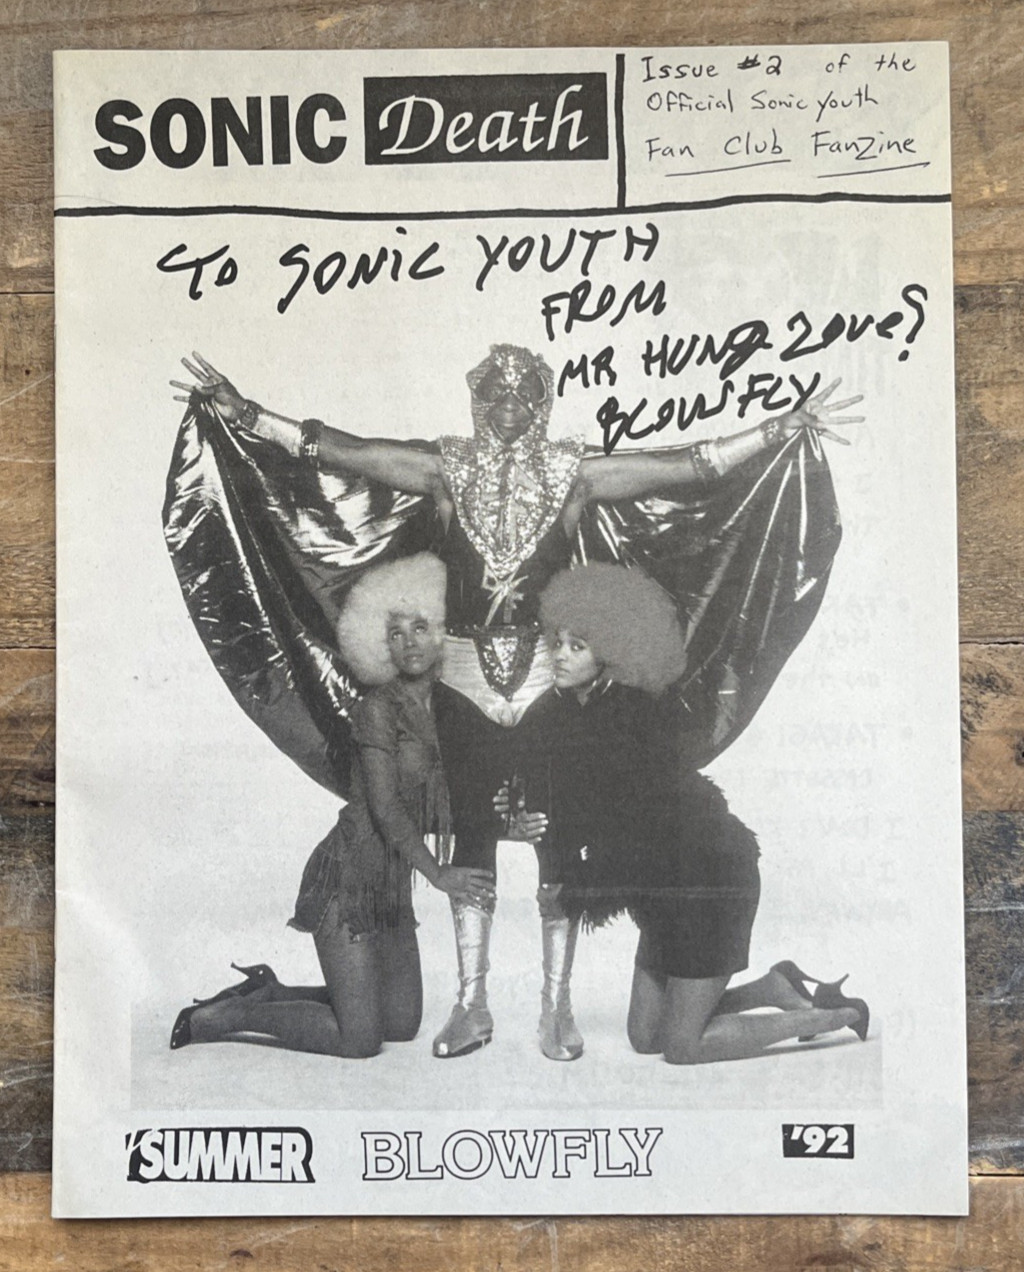 SONIC Death
Issue #2 of the
Official Sonic Youth
Fan Club FanZine
TO SONIC YOUTH
FROM
MR HUNG LOVE?
BLOWFLY
SUMMER BLOWFLY '92